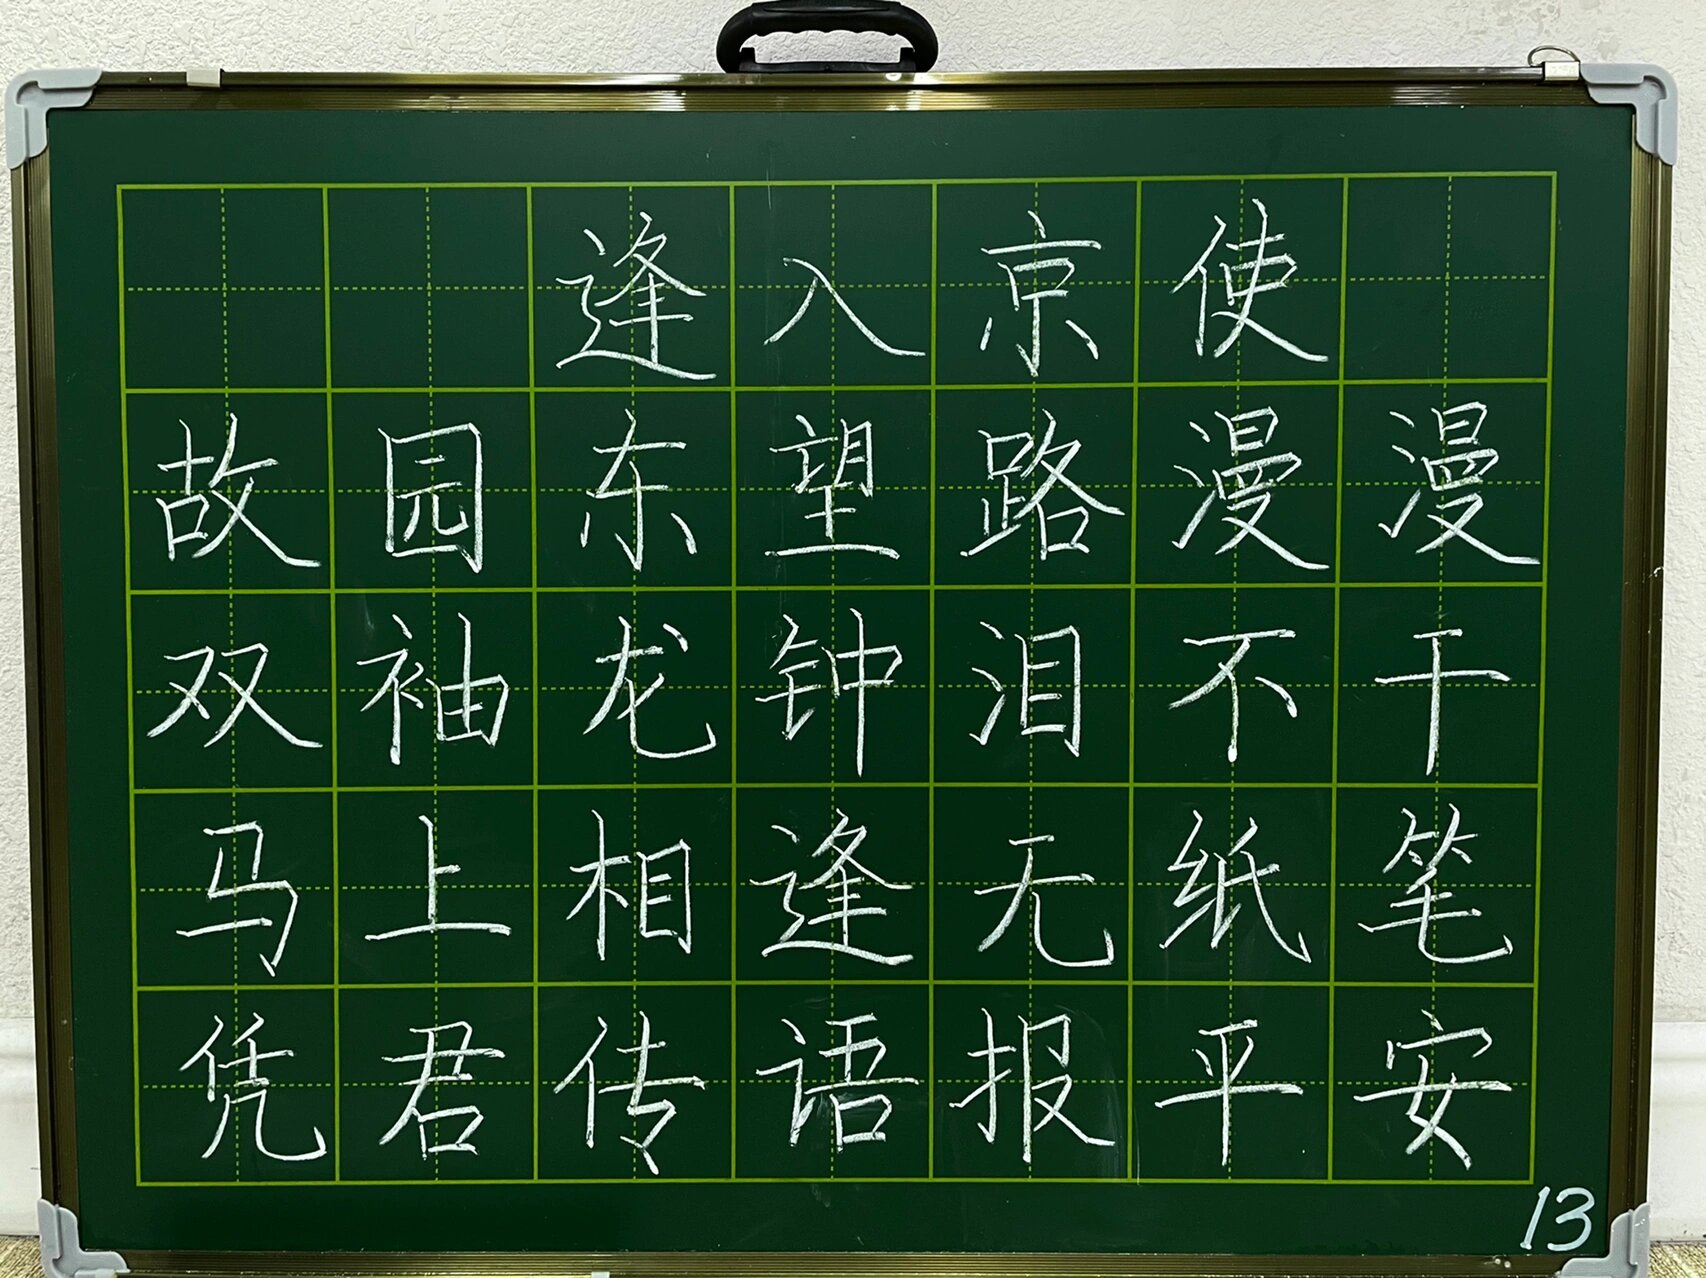 逢入京使
故园东望路漫漫
双袖龙钟泪不干
马上相逢无纸笔
凭君传语报平安
13